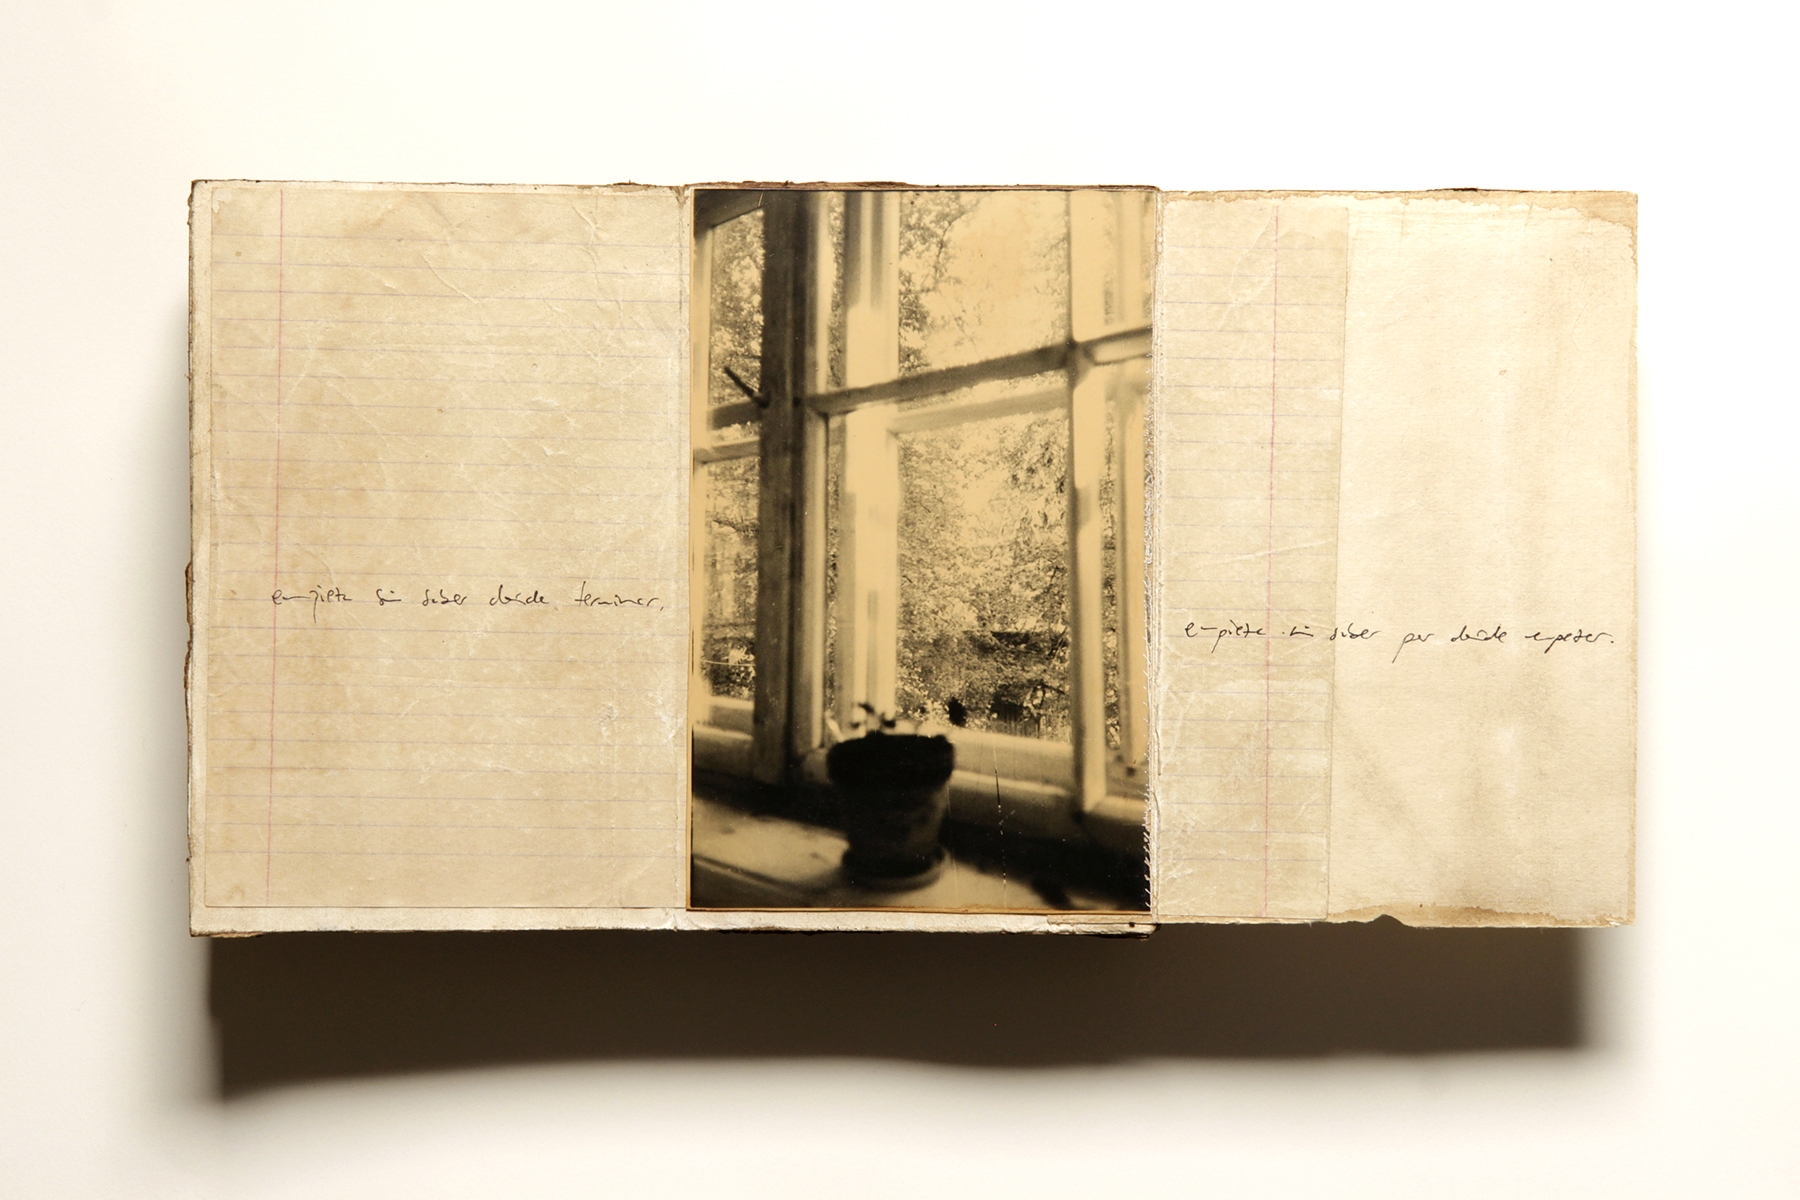 empieza sin saber donde terminar,
empieza sin saber por donde empezar.